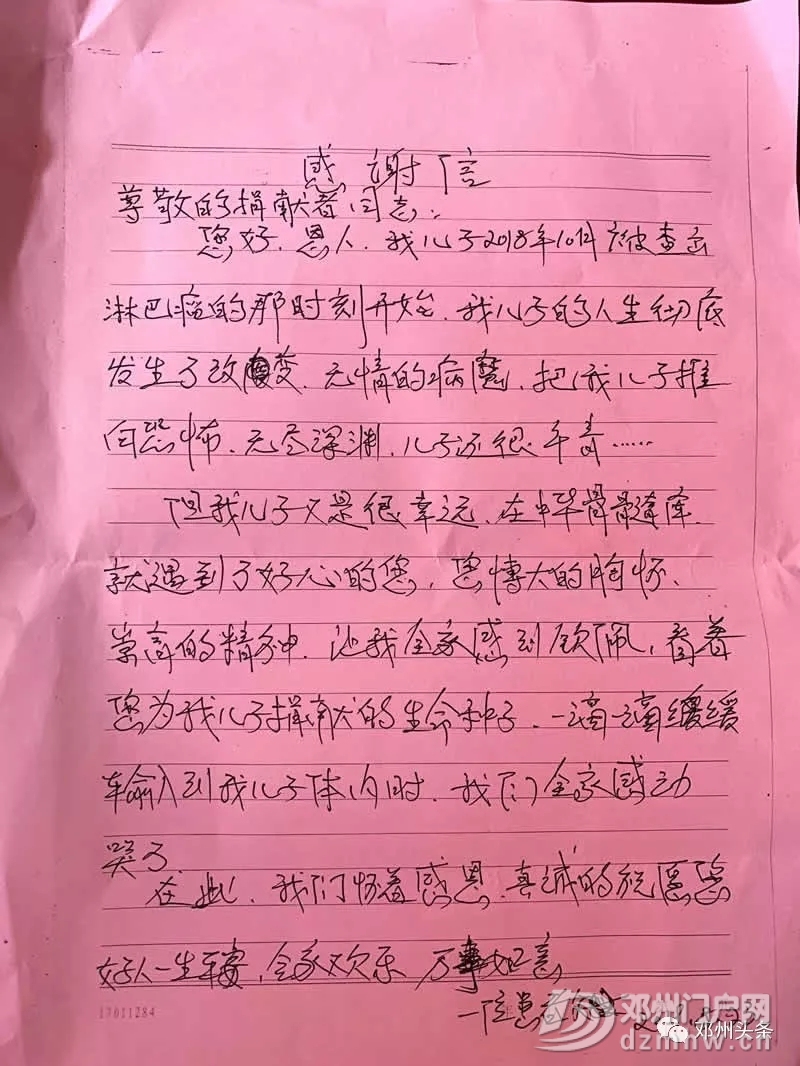 感谢信
尊敬的捐献者同志:
您好、恩人、我儿子2018年10月份被查出
淋巴瘤的那时刻开始、我儿子的人生彻底
发生了改变、无情的病魔、把我儿子推
向恐怖、无尽深渊、儿子还很年青……
但我儿子又是很幸运、在中华骨髓库、
就遇到了好心的您、您博大的胸怀、
崇高的精神、让我全家感到钦佩、看着
您为我儿子捐献的生命种子、一滴一滴缓缓
输入到我儿子体内时、我们全家感动
哭了
在此、我们怀着感恩、真诚的祝愿您
好人一生平安、全家欢乐 万事如意
一位患者
17011284
邓州门户网
dzmhw.cn
邓州头条